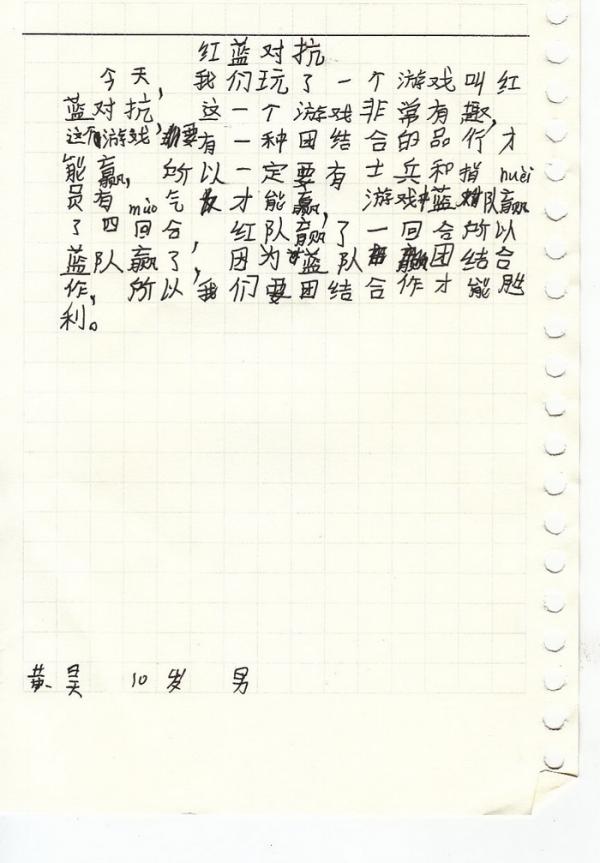 红蓝对抗
今天，我们玩了一个游戏叫红
蓝对抗，这一个游戏非常有趣，
这个游戏要有一种团结合的品行才
能赢，所以一定要有士兵和指huèi
员有mùo气才能赢，游戏中蓝队赢
了四回合，红队赢了一回合所以
蓝队赢了，因为蓝队团结合
作，所以我们要团结合作才能胜
利。
黄昊 10岁 男